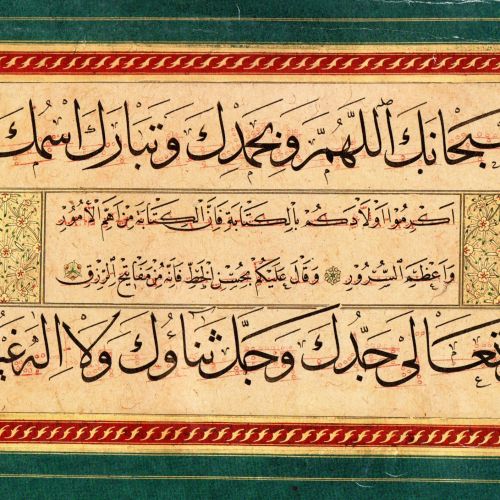 سبحانك اللهم وبحمدك وتبارك اسمك
اكرموا اولادكم بالكتابة فان الكتابة من اهم الأمور
واعظم السرور وقال عليكم بحسن الخط فانه من مفاتيح الرزق
وتعالى جدك وجل ثناؤك ولا اله غير